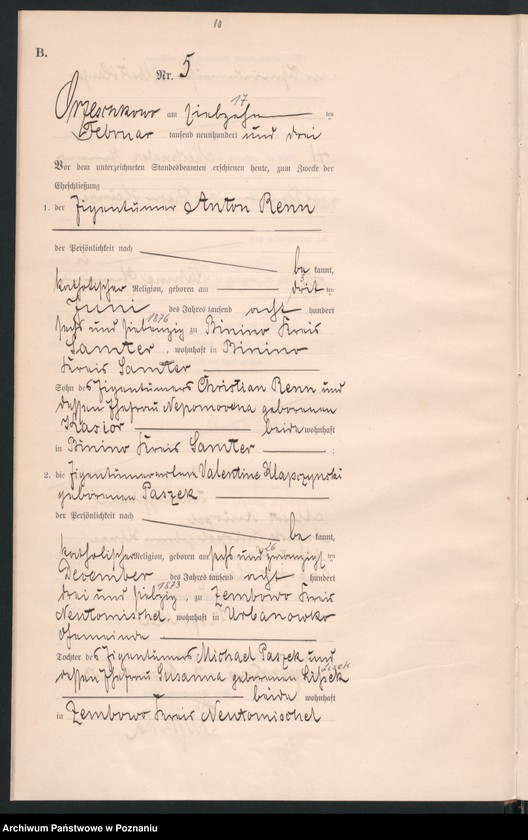 10
B.
Nr. 5
am siebzehn ten
17
Februar tausend neunhundert und drei
Vor dem unterzeichneten Standesbeamten erschienen heute, zum Zwecke der
Eheschließung
1. der Eigentümer Anton Renn
der Persönlichkeit nach
be kannt,
katholischer Religion, geboren am drit ten
3
Juni des Jahres tausend acht hundert
sechs und siebenzig zu Binino Kreis
1876
Samter, wohnhaft in Binino
Kreis Samter
Sohn des Eigentümers Christian Renn und
dessen Ehefrau Nepomovena geborenen
beide wohnhaft
in Binino Kreis Samter ;
2. die Valentine Klapczynski
geborenen Paszek
der Persönlichkeit nach
be kannt,
katholischer Religion, geboren am sechs und zwanzigsten
26
Dezember des Jahres tausend acht hundert
drei und siebzig, zu Zembowo Kreis
1873
Neutomischel, wohnhaft in Urbanowko
Gemeinde
Tochter des Eigentümers Michael Paszek und
dessen Ehefrau Susanna geborenen
beide wohnhaft
in Zembowo Kreis Neutomischel
Archiwum Państwowe w Poznaniu